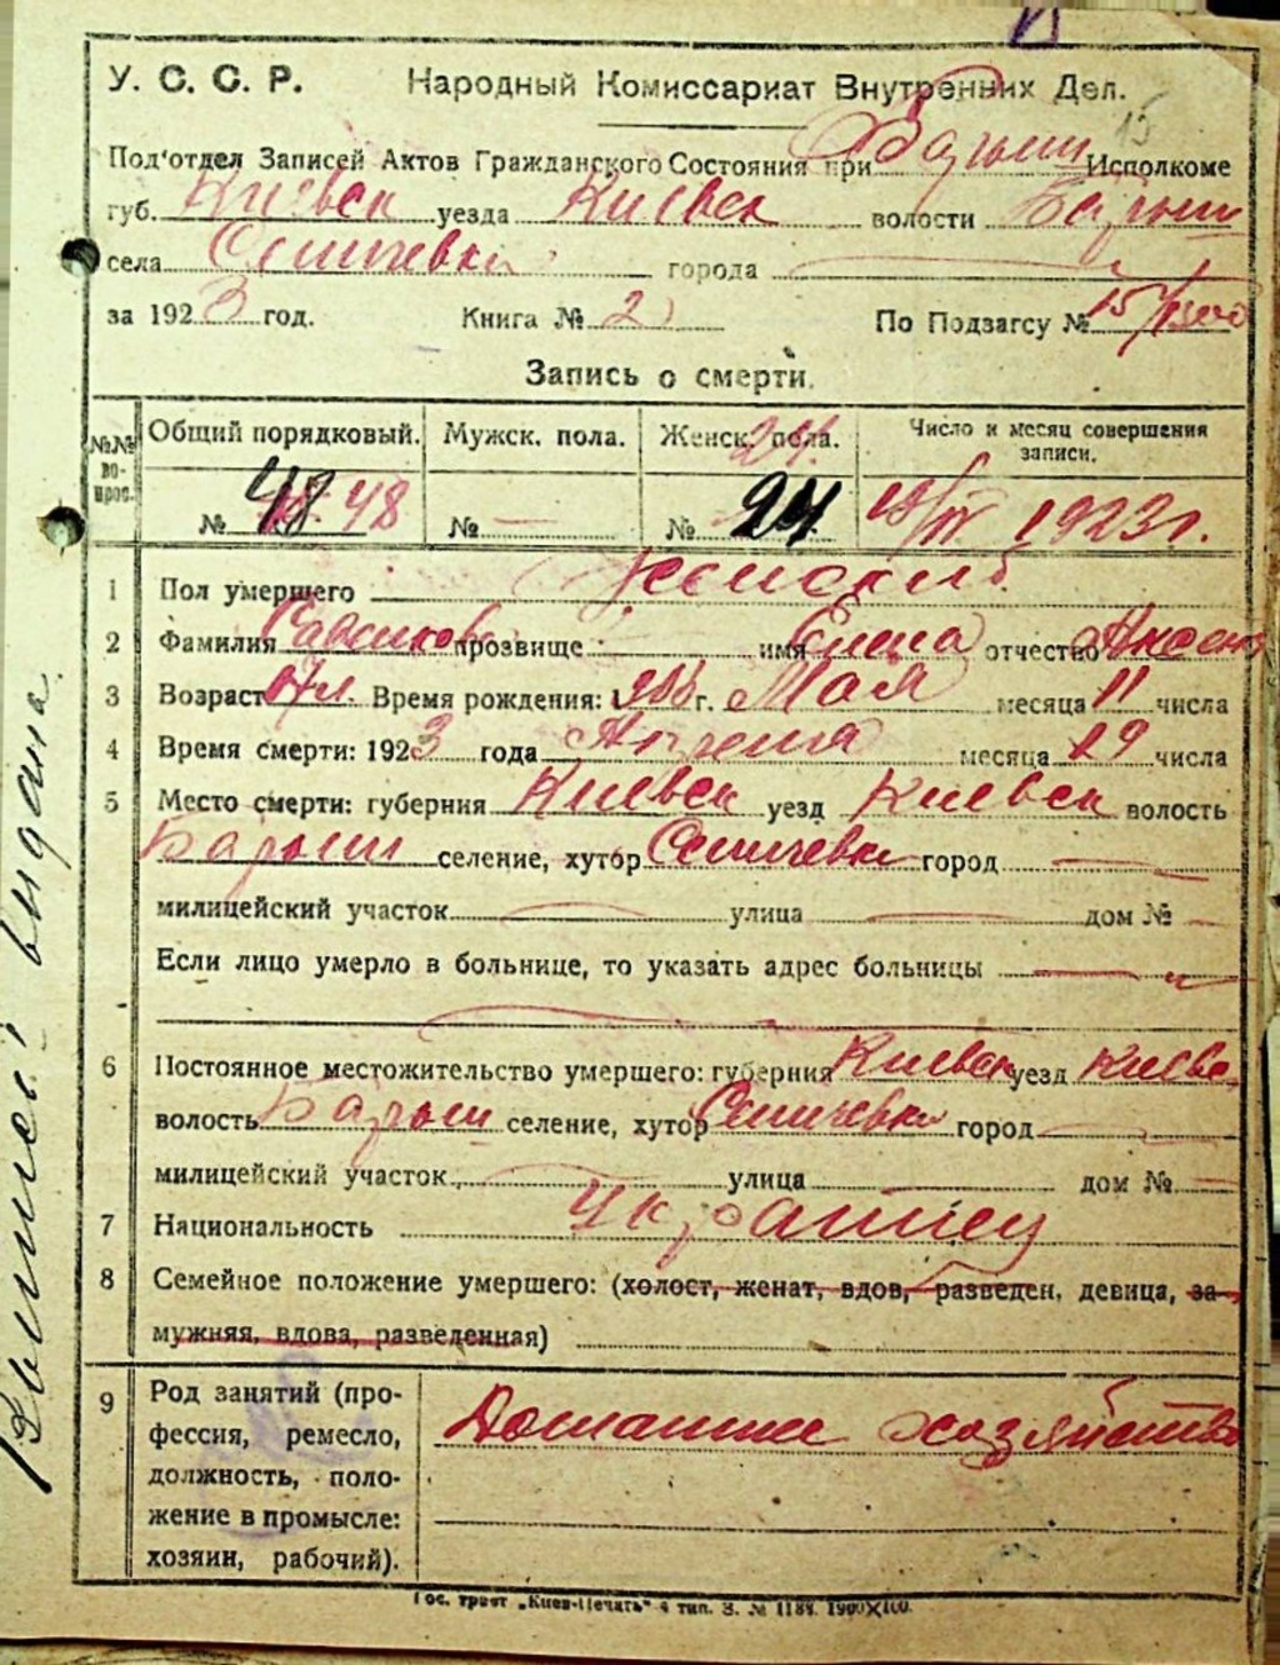 У. С. С. Р. Народный Комиссариат Внутренних Дел.
Под'отдел Записей Актов Гражданского Состояния при Барыш Исполкоме
губ. Киевск уезда Киевск волости Барыш
села Сеничевки города
за 1923 год. Книга № 2 По Подзагсу № 15
Запись о смерти.
№№ во-прос. Общий порядковый. Мужск. пола. Женск. пола. Число и месяц совершения записи.
№ 48 48 № — № 24 1923 г.
1 Пол умершего Женский
2 Фамилия прозвище имя Елена отчество Аксен
3 Возраст 17 л. Время рождения: 1 г. Мая месяца 11 числа
4 Время смерти: 1923 года Апреля месяца 19 числа
5 Место смерти: губерния Киевск уезд Киевск волость
Барыш селение, хутор Сеничевка город —
милицейский участок — улица — дом № —
Если лицо умерло в больнице, то указать адрес больницы —
6 Постоянное местожительство умершего: губерния Киевск уезд Киевс
волость Барыш селение, хутор Сеничевка город —
милицейский участок — улица — дом № —
7 Национальность Украинец
8 Семейное положение умершего: (холост, женат, вдов, разведен, девица, за-
мужняя, вдова, разведенная)
9 Род занятий (про-
фессия, ремесло,
должность, поло-
жение в промысле:
хозяин, рабочий).
Домашнее хозяйство
Гос. трест „Киев-Печать" 4 тип. З. № 1188.
видана.